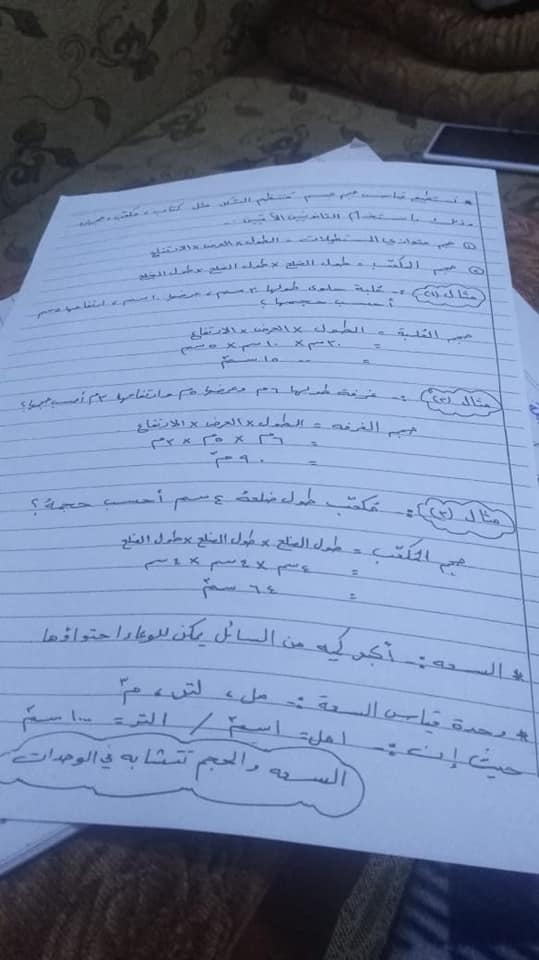 * نستطيع قياس حجم جسم منتظم الشكل مثل كتاب، مكتب،
وذلك باستخدام القانونين الآتيين :-
① حجم متوازي المستطيلات = الطول x العرض x الارتفاع
② حجم المكعب = طول الضلع x طول الضلع x طول الضلع
مثال (١) :- علبة حلوى طولها ٣٠سم، عرضها ١٠سم، ارتفاعها ٥سم
أحسب حجمها؟
حجم العلبة = الطول x العرض x الارتفاع
= ٣٠سم x ١٠سم x ٥سم
= ١٥٠٠ سم٣
مثال (٢) :- غرفة طولها ٦م وعرضها ٥م وارتفاعها ٣م أحسب حجمها؟
حجم الغرفة = الطول x العرض x الارتفاع
= ٦م x ٥م x ٣م
= ٩٠م٣
مثال (٣) :- مكعب طول ضلعة ٤سم أحسب حجمة؟
حجم المكعب = طول الضلع x طول الضلع x طول الضلع
= ٤سم x ٤سم x ٤سم
= ٦٤ سم٣
* السعه :- أكبر كميه من السائل يمكن للوعاء احتواؤها
* وحدة قياس السعة :- مل، لتر، م٣
حيث إن :- ١مل = ١سم٣ / ١لتر = ١٠٠٠سم٣
السعه والحجم تتشابه في الوحدات